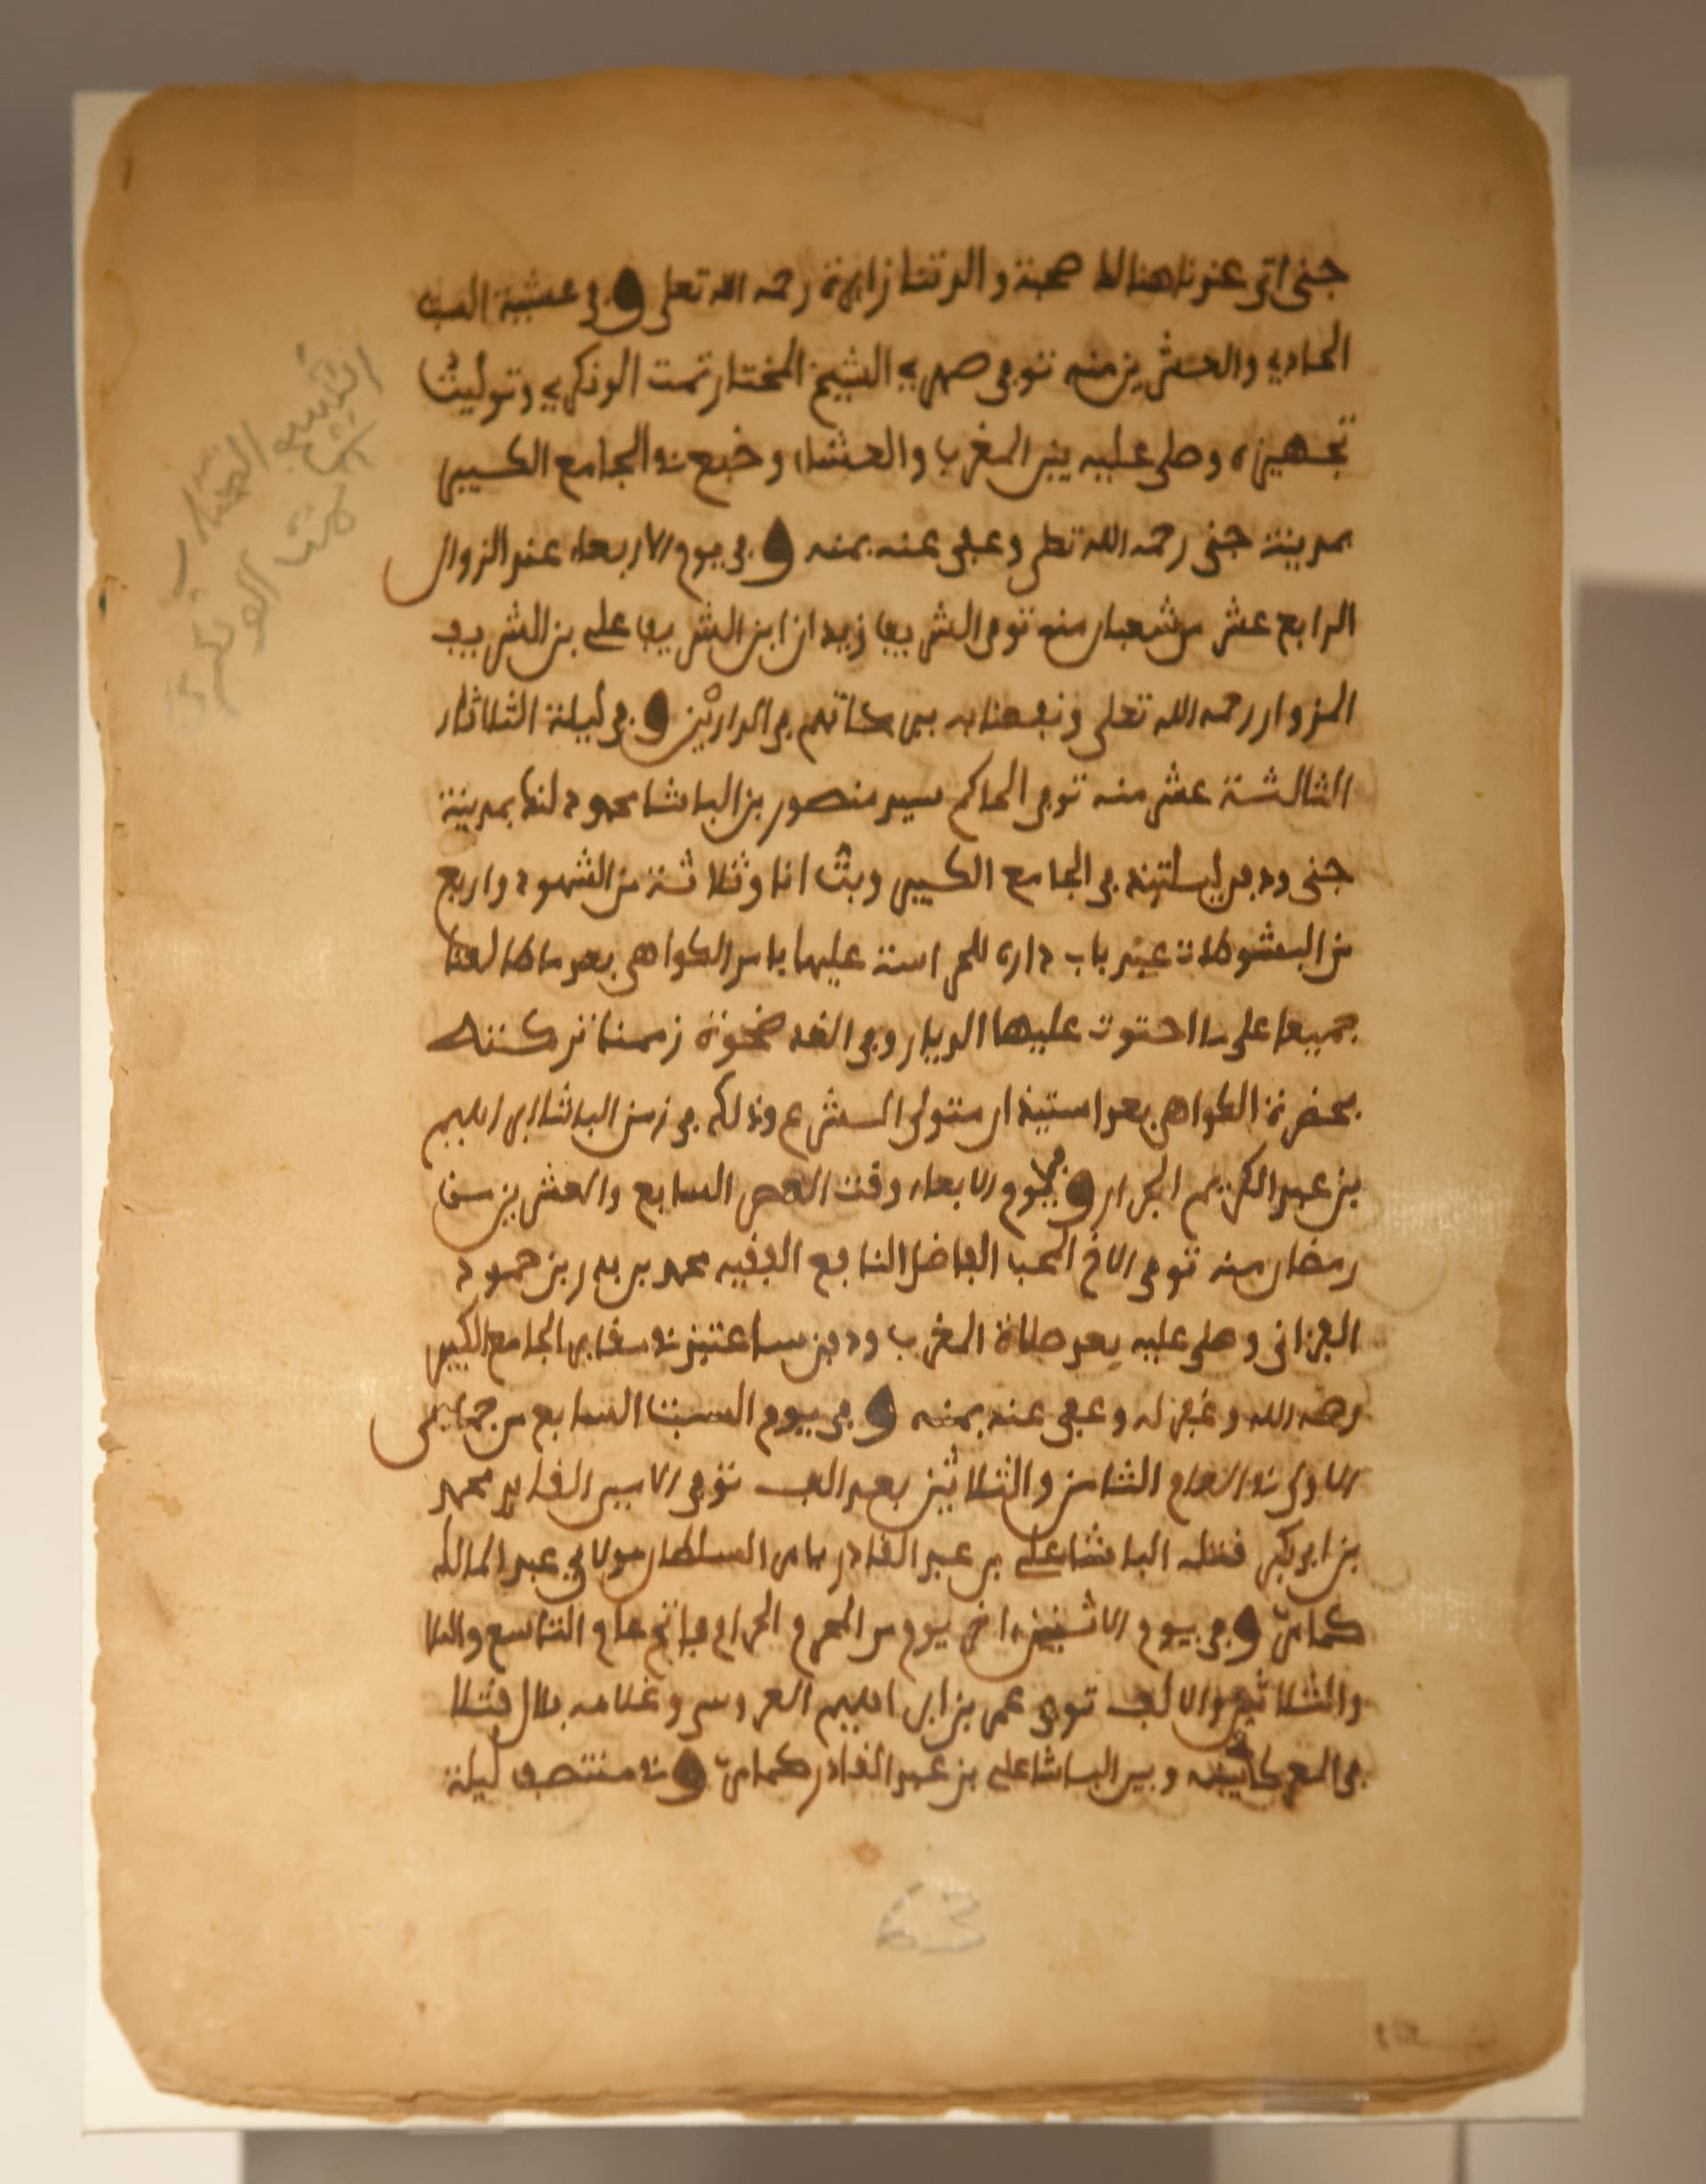 جنى اتى عندنا هنالك صحبة والدتنا زايرة رحمه الله تعلى وفى عشية السبت
الحادي والعشرين منه توفى صهري الشيخ المختار تمت الونكري وتوليت
تجهيزه وصلى عليه بين المغرب والعشاء ودفن فى الجامع الكبير
بمدينة جنى رحمه الله تعلى وعفى عنه بمنه وفى يوم الاربعاء عند الزوال
الرابع عشر من شعبان منه توفى الشريف زيدان ابن الشريف على بن الشريف
المزوار رحمه الله تعلى ونفعنا به ببركاتهم فى الدارين وفى ليلة الثلاثاء
الثالثة عشر منه توفى الحاكم سيد منصور بن الباشا محمود لنك بمدينة
جنى ودفن ليلتئذ فى الجامع الكبير وبت انا وثلاثة من الشهود واربع
من البشوظات عند باب داره للحراسة عليها بامر الكواهى بعد ما طالعنا
جميعا على ما احتوت عليها الديار وفى الغد ضحوة زممنا تركته
بحضرة الكواهى بعد استيذان متولى الشرع وذلك فى زمن الباشا ابراهيم
بن عبد الكريم الجرار وفى يوم الاربعاء وقت العصر السابع والعشرين من
رمضان منه توفى الاخ المحب الفاضل النافع الفقيه محمد بن بدر بن حمود
الفزانى وصلى عليه بعد صلاة المغرب ودفن ساعتئذ فى سفاير الجامع الكبير
رحمه الله وغفر له وعفى عنه بمنه وفى يوم السبت السابع من جمادى
الاولى فى العام الثامن والثلاثين بعد الف توفى الامير القايد محمد
بن ابى بكر قتله الباشا على بن عبد القادر بامر السلطان مولاي عبد المالك
كما مر وفى يوم الاثنين اخر يوم من المحرم الحرام فاتح عام التاسع والثلا
والثلاثين والالف توفى عمر بن ابراهيم العروسى وغلامه بلال قتلا
فى المعركة بينه وبين الباشا على بن عبد القادر كما مر وفى منتصف ليلة
الشيخ المختار
تمت الونكري
63